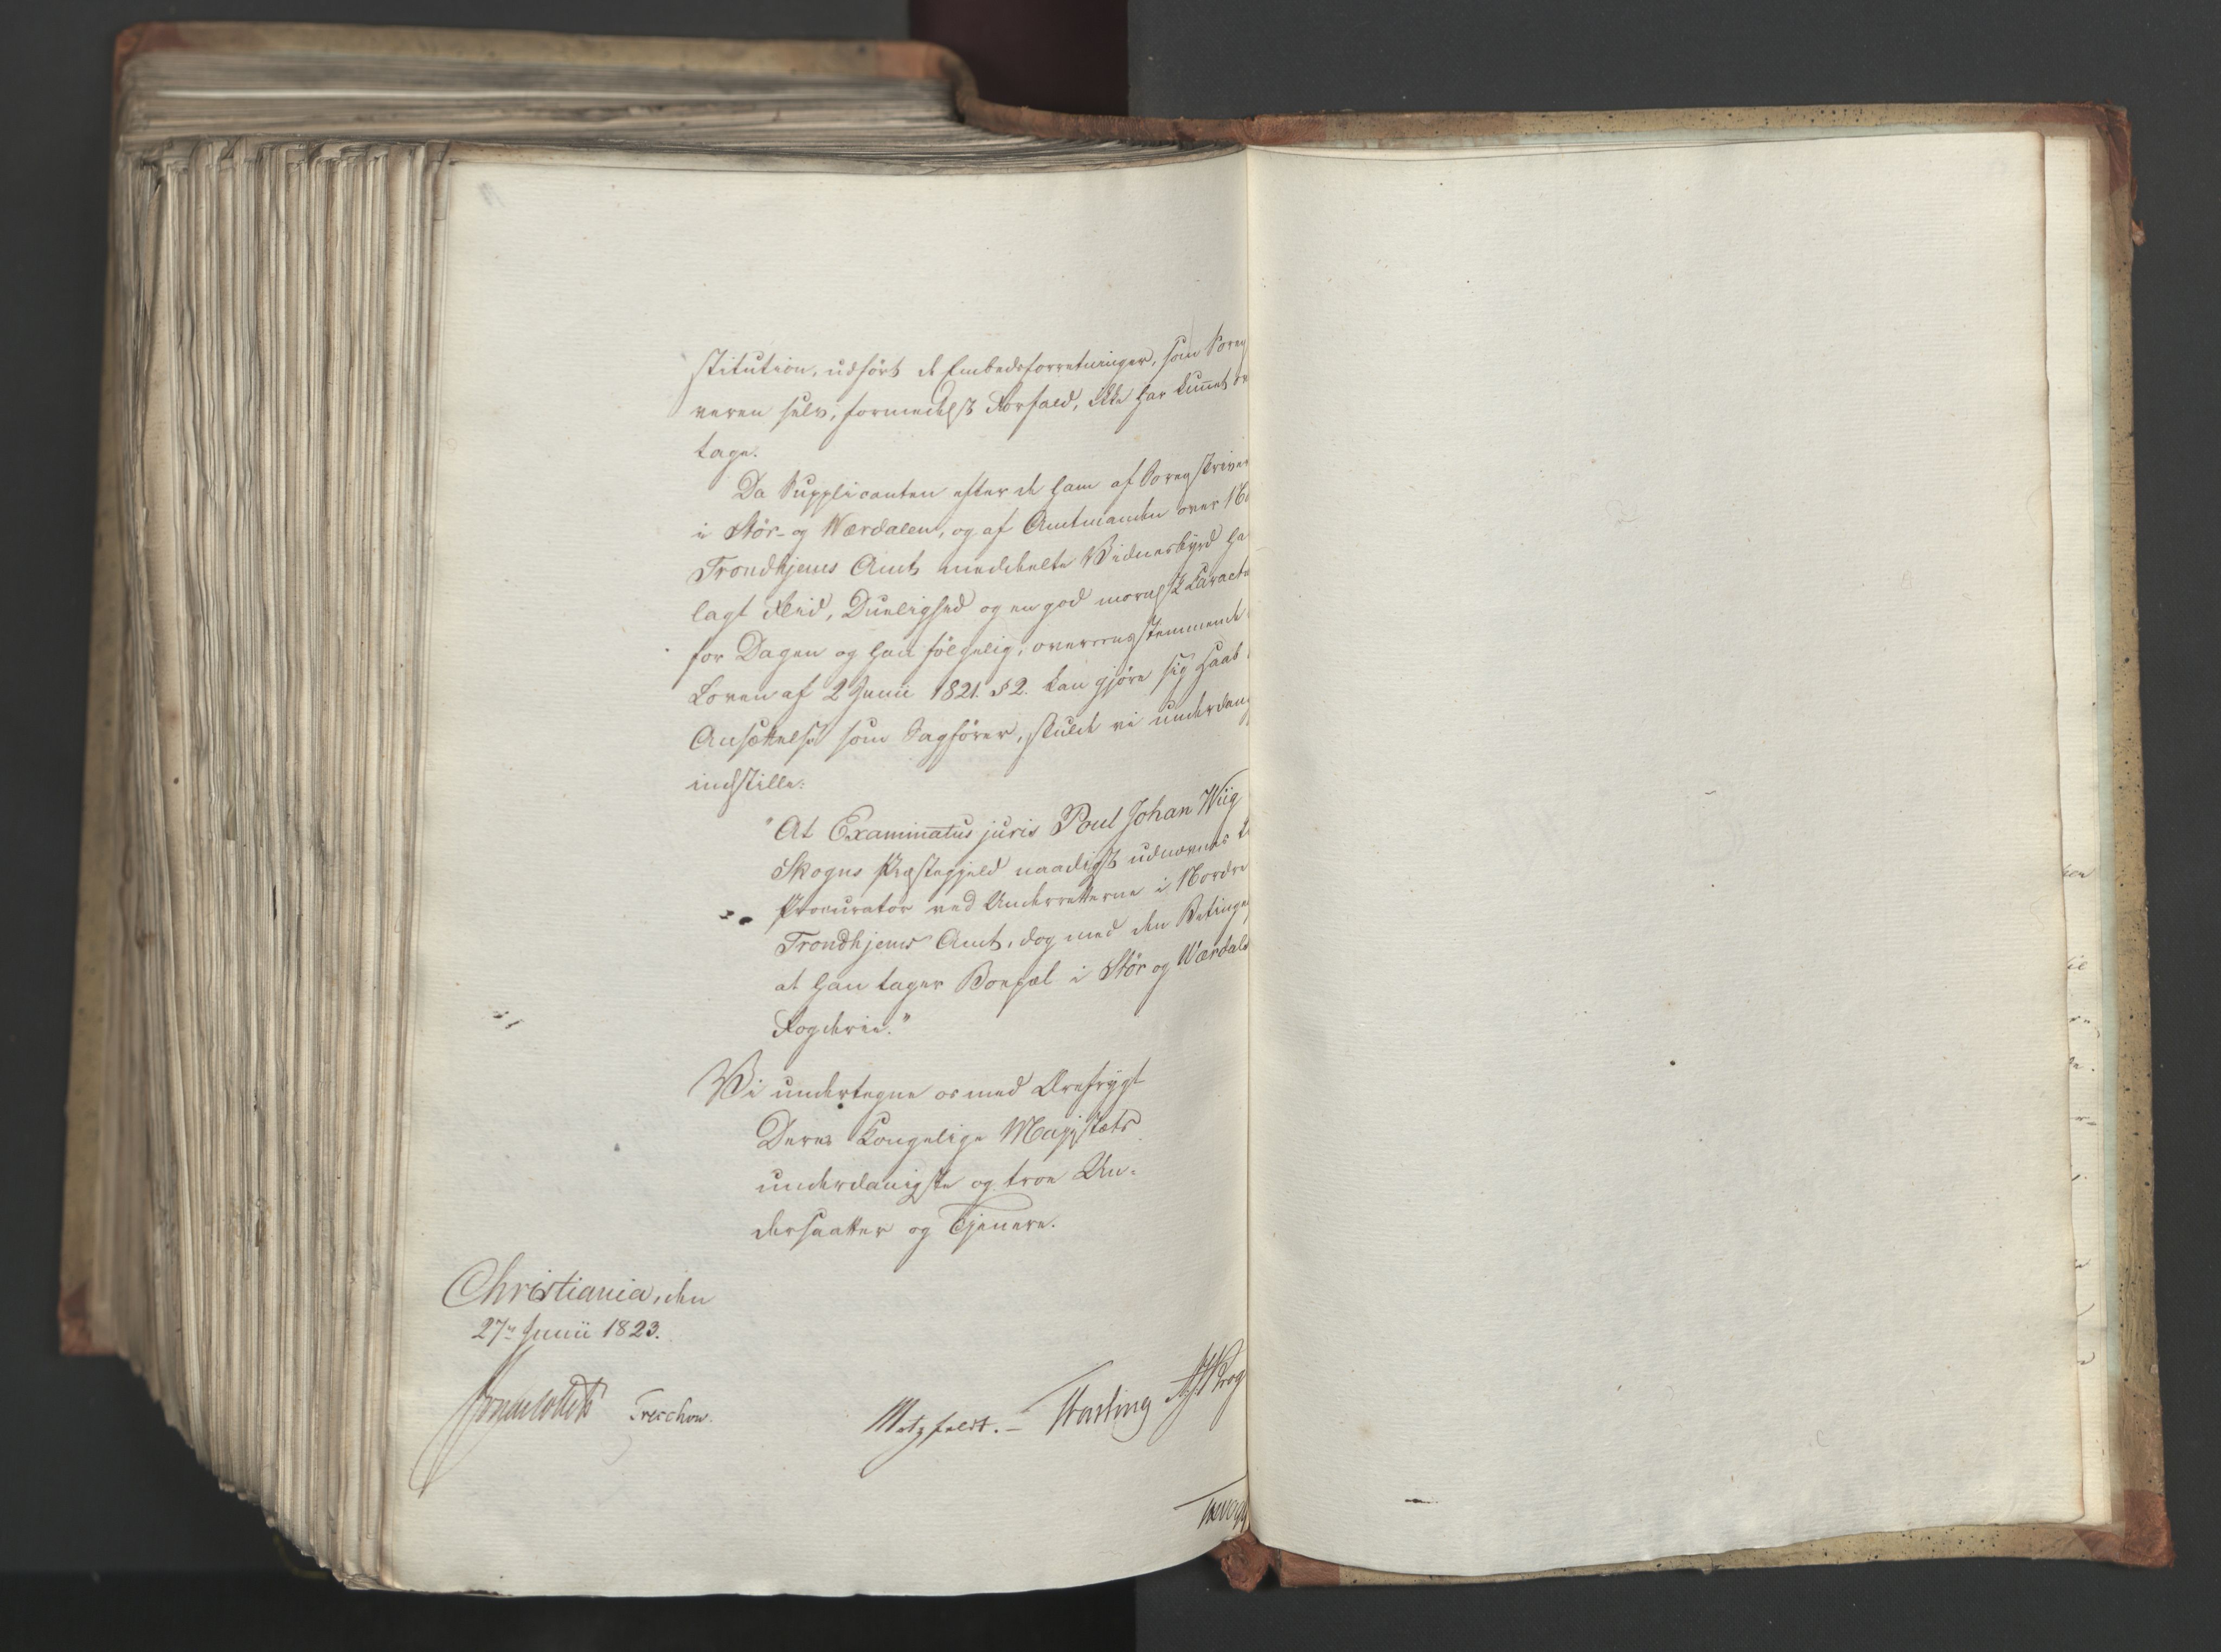 stitution, udført de Embedsforretninger, som Soren
veren selv, formedelst Forfald, ikke har kunnet
tage.
Da Supplicanten efter de ham af Sorenskriver
i Stör- og Værdalen, og af Amtmanden over No
Trondhjems Amt meddeelte Vidnesbyrd ha
lagt Flid, Duelighed og en god moralsk Caracte
for Dagen og han følgelig, overeensstemmende
Loven af 2 Junii 1821. § 2. kan gjøre sig Haab
Ansættelse som Sagfører, skulde vi underdan
indstille:
"At Examinatus juris Poul Johan Wiig
Skogns Præstegjeld naadigst udnævnes
Procurator ved Underretterne i Nordre
Trondhjems Amt, dog med den Betinge
at han tager Bopæl i Stör og Værdals
Fogderie."
Vi undertegne os med Ærefrygt
Deres Kongelige Majestæts
underdanigste og troe Un-
dersaatter og Tjenere.
Christiania, den
27n Junii 1823.
Treschow.
Motzfeldt. – Fasting